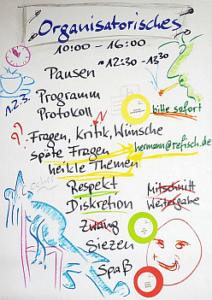 Organisatorisches
10:00 - 16:00
~12:30 - 13:30
Pausen
1.2.3. Programm
Protokoll
bitte sofort
? Fragen, Kritik, Wünsche
Späte Fragen hermann@refisch.de
heikle Themen
Respekt Mitschnitt
Diskretion Weitergabe
Zwang
Siezen
Spaß